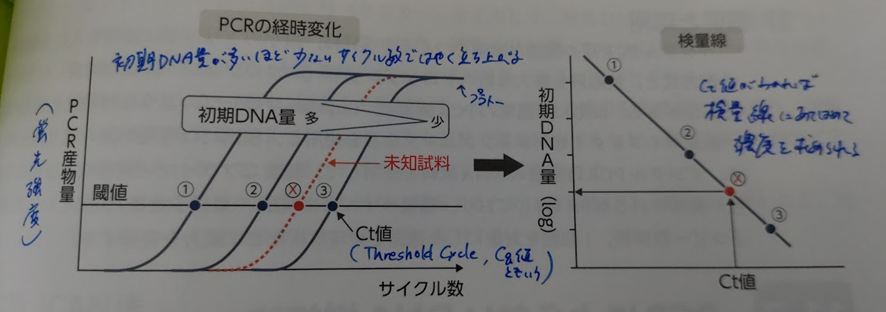 PCRの経時変化
初期DNA量が多いほど少ないサイクル数ではやく立ち上がる
PCR産物量
(蛍光強度)
初期DNA量 多 少
プラトー
未知試料
閾値
① ② Ⓧ ③
Ct値
(Threshold Cycle, Cq値ともいう)
サイクル数
検量線
初期DNA量(log)
①
②
Ⓧ
③
Ct値がわかれば
検量線にあてはめて
濃度を求められる
Ct値